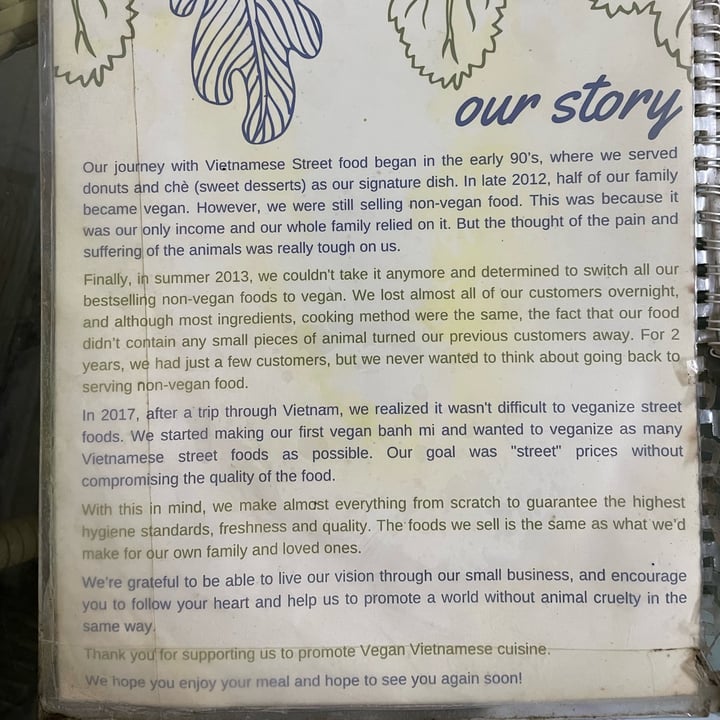 our story
Our journey with Vietnamese Street food began in the early 90's, where we served
donuts and chè (sweet desserts) as our signature dish. In late 2012, half of our family
became vegan. However, we were still selling non-vegan food. This was because it
was our only income and our whole family relied on it. But the thought of the pain and
suffering of the animals was really tough on us.
Finally, in summer 2013, we couldn't take it anymore and determined to switch all our
bestselling non-vegan foods to vegan. We lost almost all of our customers overnight,
and although most ingredients, cooking method were the same, the fact that our food
didn't contain any small pieces of animal turned our previous customers away. For 2
years, we had just a few customers, but we never wanted to think about going back to
serving non-vegan food.
In 2017, after a trip through Vietnam, we realized it wasn't difficult to veganize street
foods. We started making our first vegan banh mi and wanted to veganize as many
Vietnamese street foods as possible. Our goal was "street" prices without
compromising the quality of the food.
With this in mind, we make almost everything from scratch to guarantee the highest
hygiene standards, freshness and quality. The foods we sell is the same as what we'd
make for our own family and loved ones.
We're grateful to be able to live our vision through our small business, and encourage
you to follow your heart and help us to promote a world without animal cruelty in the
same way.
Thank you for supporting us to promote Vegan Vietnamese cuisine.
We hope you enjoy your meal and hope to see you again soon!